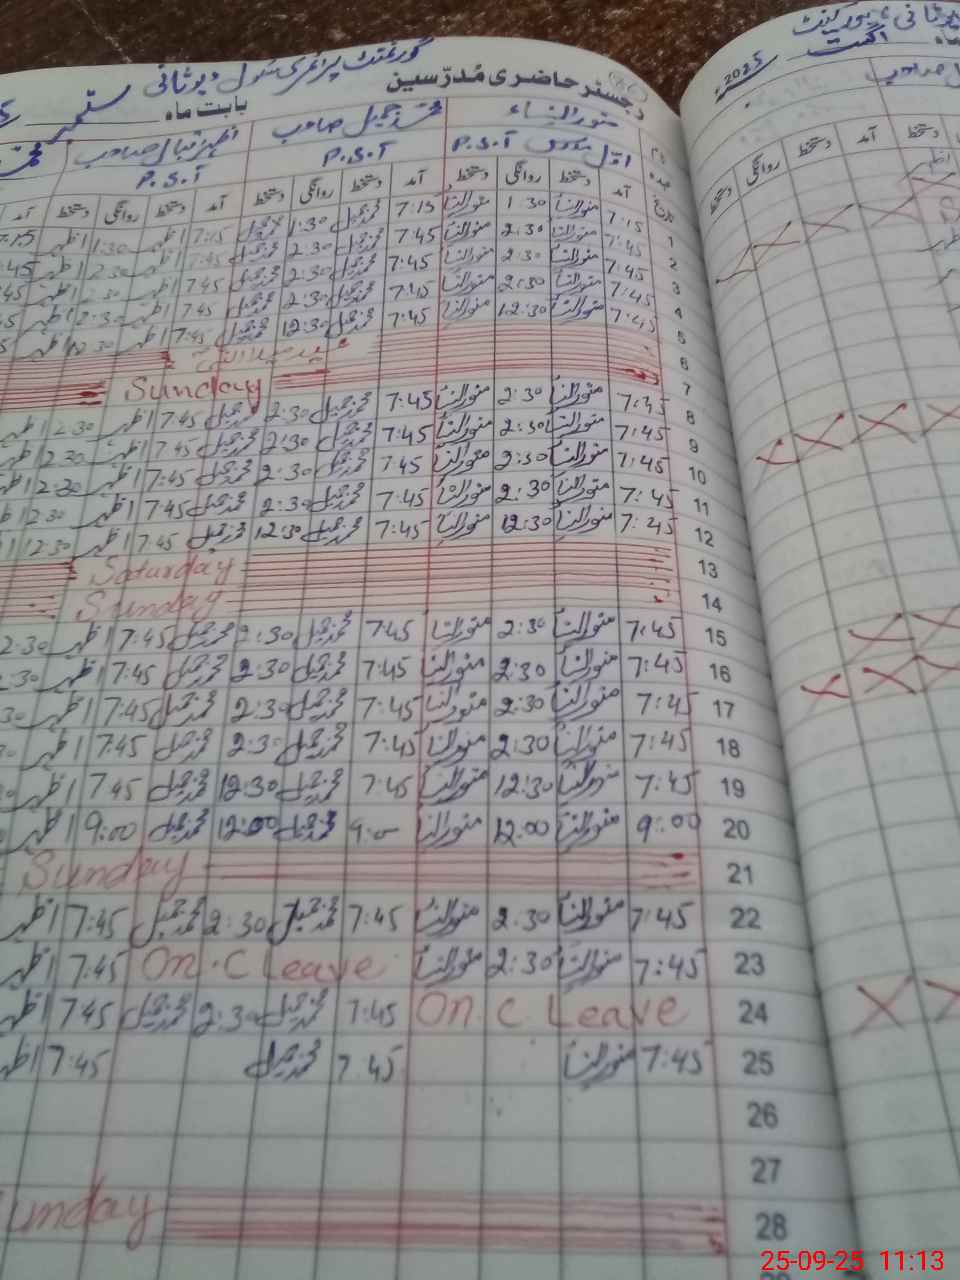 گورنمنٹ پرائمری سکول
رجسٹر حاضری مُدرّسین
بابت ماہ ستمبر
2025
اگست
منور النساء
محمد جمیل صاحب
صاحب
P.S.T P.S.T P.S.T
تاریخ آمد دستخط روانگی دستخط آمد دستخط روانگی دستخط آمد دستخط روانگی دستخط آمد
1 7:15 منورالنسا 1:30 منورالنسا 7:15 محمد جمیل 1:30 محمد جمیل 7:15 اظہر 1:30 اظہر 7:15
2 7:45 منورالنسا 2:30 منورالنسا 7:45 محمد جمیل 2:30 محمد جمیل 7:45 اظہر 2:30 اظہر
3 7:45 منورالنسا 2:30 منورالنسا 7:45 محمد جمیل 2:30 محمد جمیل 7:45 اظہر 2:30 اظہر
4 7:45 منورالنسا 2:30 منورالنسا 7:15 محمد جمیل 2:30 محمد جمیل 7:45 اظہر 2:30 اظہر
5 7:45 منورالنسا 12:30 منورالنسا 7:45 محمد جمیل 12:30 محمد جمیل 7:45 اظہر 12:30 اظہر
6
7 Sunday
8 7:45 منورالنسا 2:30 منورالنسا 7:45 محمد جمیل 2:30 محمد جمیل 7:45 اظہر 2:30
9 7:45 منورالنسا 2:30 منورالنسا 7:45 محمد جمیل 2:30 محمد جمیل 7:45 اظہر 2:30
10 7:45 منورالنسا 2:30 منورالنسا 7:45 محمد جمیل 2:30 محمد جمیل 7:45 اظہر 2:30
11 7:45 منورالنسا 2:30 منورالنسا 7:45 محمد جمیل 2:30 محمد جمیل 7:45 اظہر 2:30
12 7:45 منورالنسا 12:30 منورالنسا 7:45 محمد جمیل 12:30 محمد جمیل 7:45 اظہر 12:30
13 Saturday
14 Sunday
15 7:45 منورالنسا 2:30 منورالنسا 7:45 محمد جمیل 2:30 محمد جمیل 7:45 اظہر 2:30
16 7:45 منورالنسا 2:30 منورالنسا 7:45 محمد جمیل 2:30 محمد جمیل 7:45 اظہر
17 7:45 منورالنسا 2:30 منورالنسا 7:45 محمد جمیل 2:30 محمد جمیل 7:45 اظہر
18 7:45 منورالنسا 2:30 منورالنسا 7:45 محمد جمیل 2:30 محمد جمیل 7:45 اظہر
19 7:45 منورالنسا 12:30 منورالنسا 7:45 محمد جمیل 12:30 محمد جمیل 7:45 اظہر
20 9:00 منورالنسا 12:00 منورالنسا 9:00 محمد جمیل 12:00 محمد جمیل 9:00 اظہر
21 Sunday
22 7:45 منورالنسا 2:30 منورالنسا 7:45 محمد جمیل 2:30 محمد جمیل 7:45 اظہر
23 7:45 منورالنسا 2:30 منورالنسا On C Leave 7:45 اظہر
24 On C. Leave 7:45 محمد جمیل 2:30 محمد جمیل 7:45 اظہر
25 7:45 منورالنسا 7:45 محمد جمیل 7:45 اظہر
26
27
28 Sunday
25-09-25 11:13